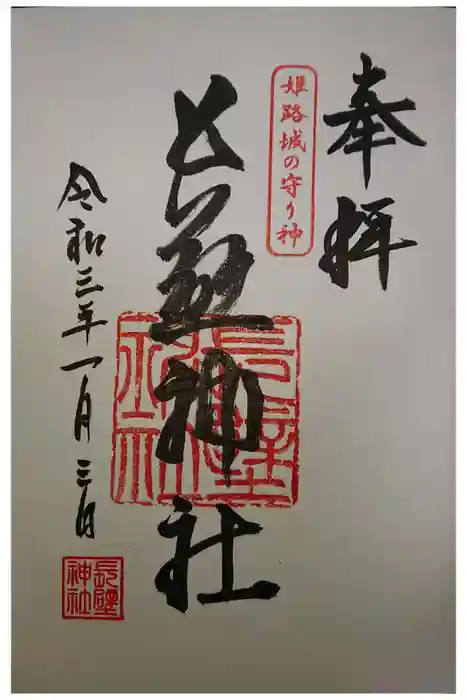 奉拝
姫路城の守り神
長壁神社
令和三年一月三日
長壁
神社